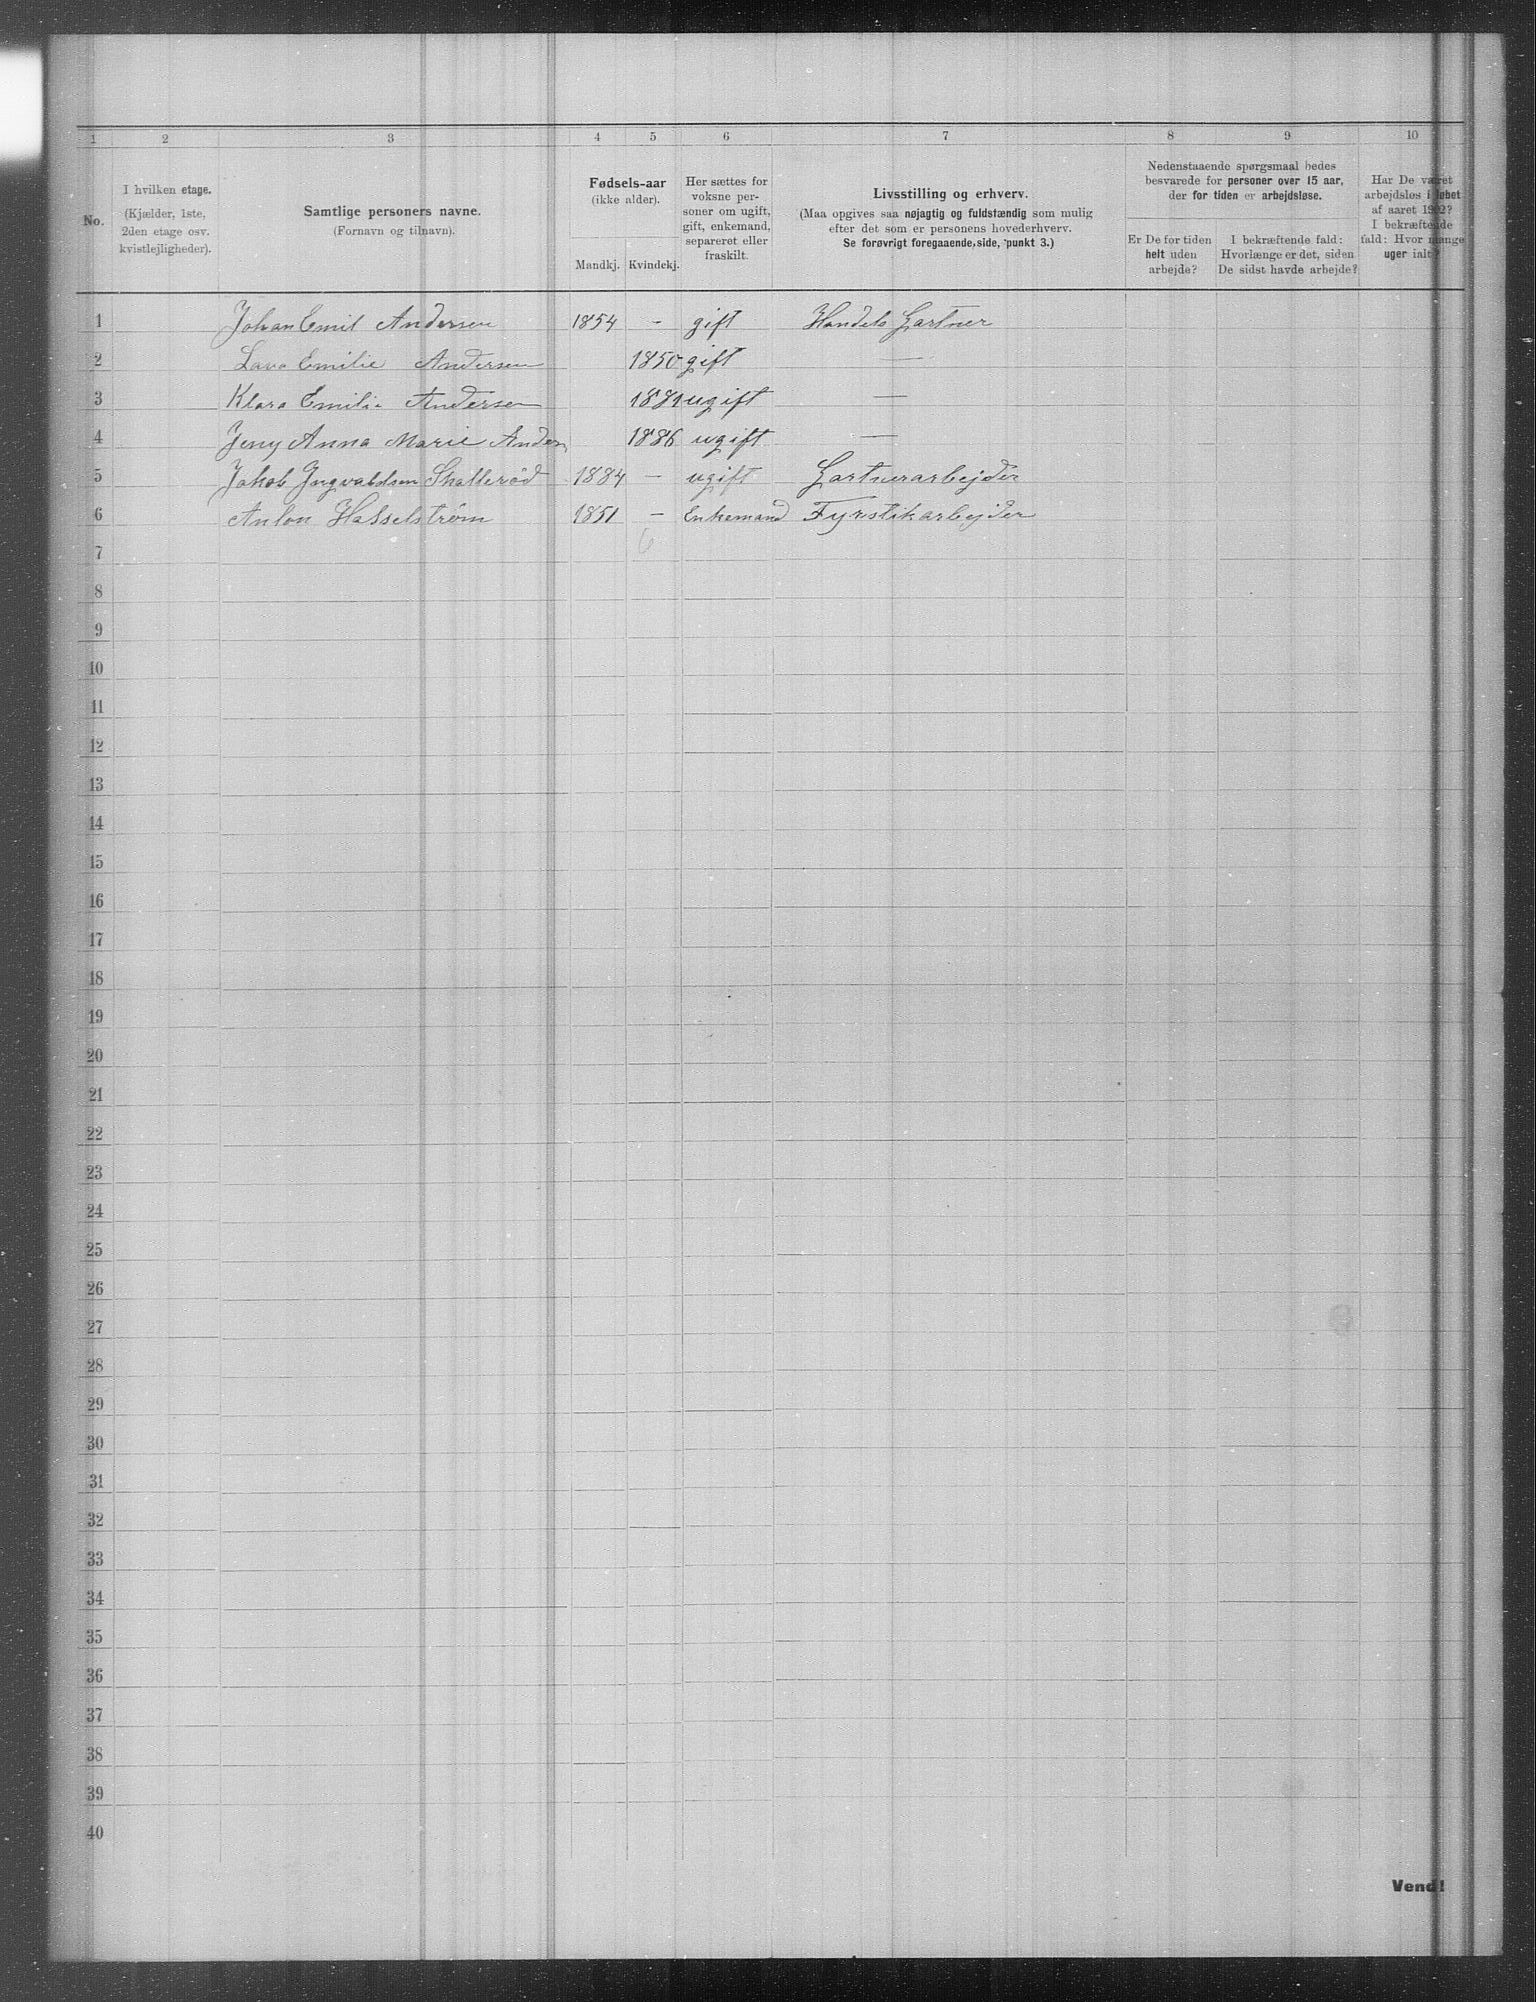 1 2 3 4 5 6 7 8 9 10
No.
I hvilken etage.
(Kjælder, 1ste,
2den etage osv.
kvistlejligheder).
Samtlige personers navne.
(Fornavn og tilnavn).
Fødsels-aar
(ikke alder).
Mandkj. Kvindekj.
Her sættes for
voksne per-
soner om ugift,
gift, enkemand,
separeret eller
fraskilt.
Livsstilling og erhverv.
(Maa opgives saa nøjagtig og fuldstændig som mulig
efter det som er personens hovederhverv.
Se forøvrigt foregaaende side, punkt 3.)
Nedenstaaende spørgsmaal bedes
besvarede for personer over 15 aar,
der for tiden er arbejdsløse.
Er De for tiden
helt uden
arbejde?
I bekræftende fald:
Hvorlænge er det, siden
De sidst havde arbejde?
Har De været
arbejdsløs i løbet
af aaret 1902?
I bekræftende
fald: Hvor mange
uger ialt?
1 Johan Emil Andersen 1854 - gift Handels Gartner
2 Emilie Andersen 1850 gift —
3 Klara Emilie Andersen 1881 ugift —
4 Jeny Anna Marie Ander 1886 ugift —
5 Jakob Ingvaldsen Skallerød 1884 - ugift Gartnerarbejder
6 Anton Hasselstrøm 1851 - Enkemand Fyrstikarbejder
6
7
8
9
10
11
12
13
14
15
16
17
18
19
20
21
22
23
24
25
26
27
28
29
30
31
32
33
34
35
36
37
38
39
40
Vend!